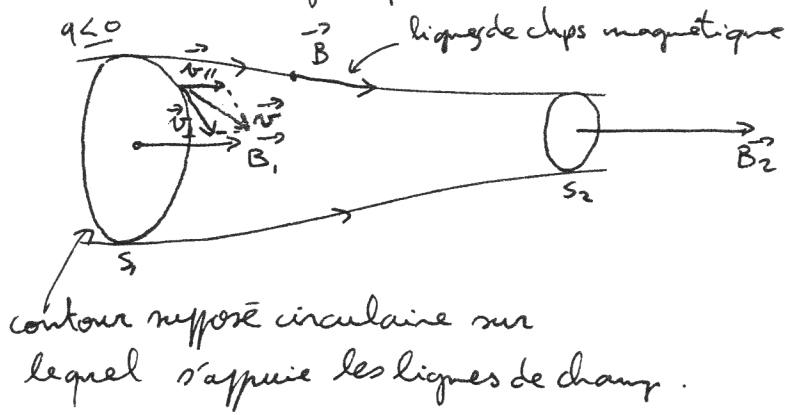 q<0
B⃗
lignes de chps magnétique
v⃗∥
v⃗⊥
v⃗
B⃗₁
B⃗₂
S₁
S₂
contour supposé circulaire sur
lequel s'appuie les lignes de champ.